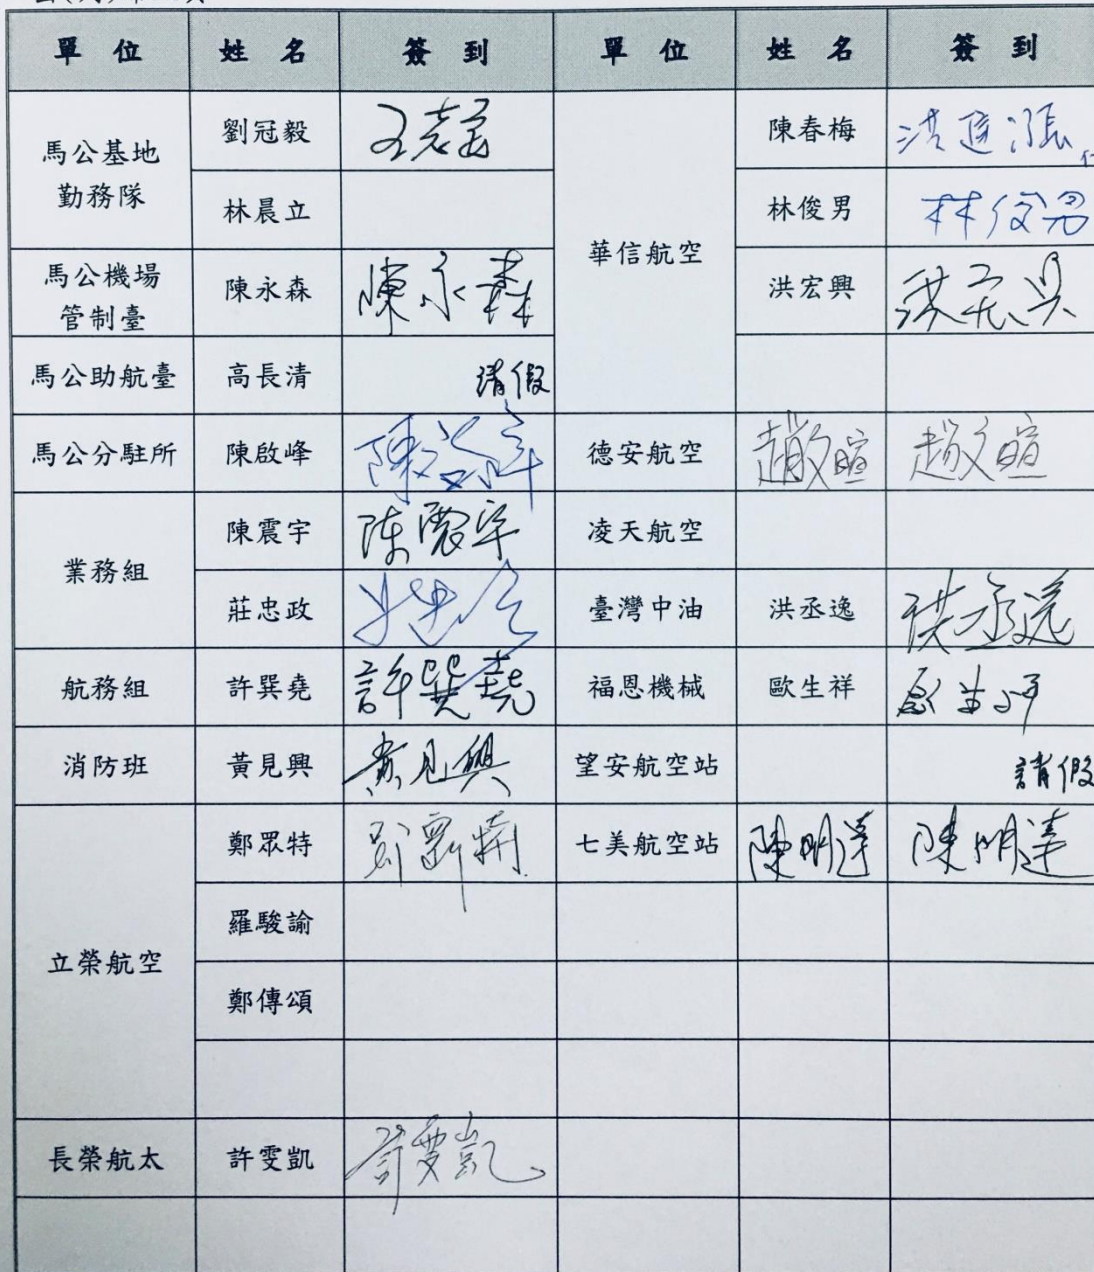 單位 姓名 簽到 單位 姓名 簽到
馬公基地勤務隊 劉冠毅 華信航空 陳春梅 洪進漲
林晨立 林俊男 林俊男
馬公機場管制臺 陳永森 陳永森 洪宏興 洪宏興
馬公助航臺 高長清 請假
馬公分駐所 陳啟峰 陳啟峰 德安航空 趙文暄 趙文暄
業務組 陳震宇 陈震宇 凌天航空
莊忠政 臺灣中油 洪丞逸 洪丞逸
航務組 許巽堯 許巽堯 福恩機械 歐生祥
消防班 黃見興 黃見興 望安航空站 請假
立榮航空 鄭眾特 七美航空站 陳明達 陳明達
羅駿諭
鄭傳頌
長榮航太 許雯凱 許雯凱